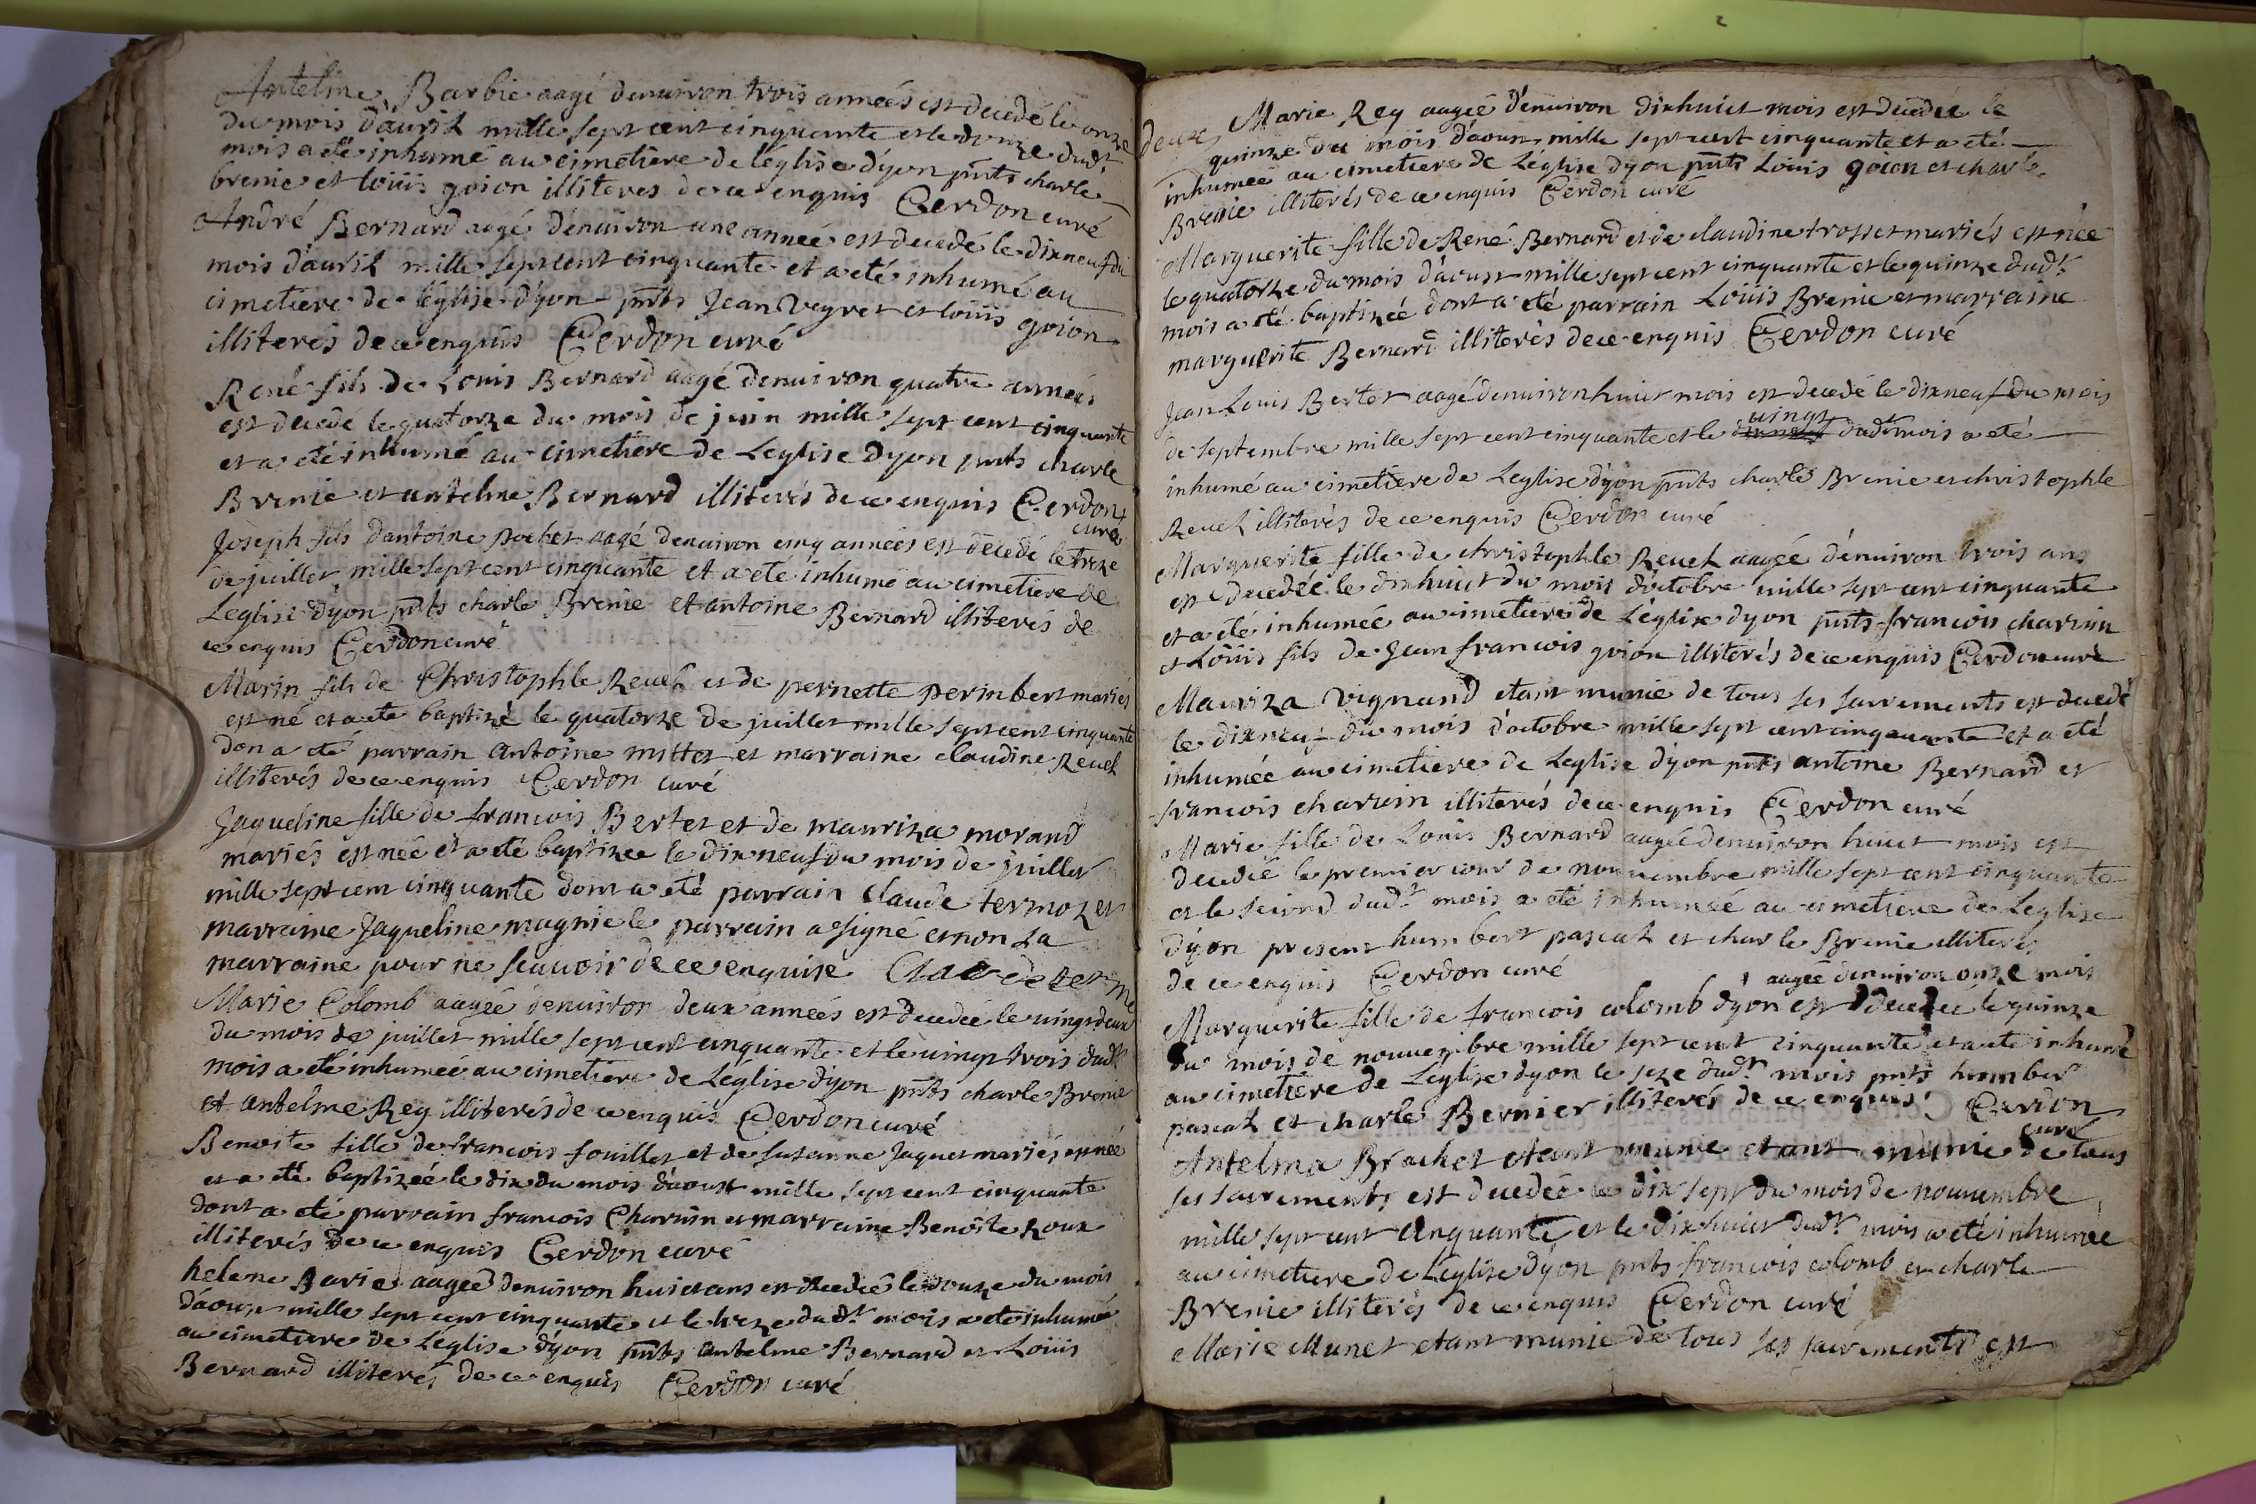 Antelme Barbie aagé denuiron trois anneés est decedé le onze
du mois d'auril mille sept cent cinquante et le douze dudt
mois a eté inhumé au cimetiere de l'églisé d'yon pnts charle
brenie et loüis goion illiterés de ce enquis Cerdon curé
André Bernard aagé d'enuiron une anneé est decedé le dixneuf du
mois d'auril mille sept cent cinquante et a eté inhumé au
cimetiere de l'église d'yon pnts Jean Veyret et loüis goion
illiterés de ce enquis Cerdon curé
René fils de Louis Bernard aagé denuiron quatre anneés
est decedé le quatorze du mois de juin mille sept cent cinquante
et a eté inhumé au cimetiere de Leglise d'yon pnts charle
Brenie et antelme Bernard illiterés de ce enquis Cerdon
curé
Joseph fils d'antoine pochet aagé denuiron cinq anneés est decedé le treze
de juillet mille sept cent cinquante et a eté inhumé au cimetiere de
Leglise d'yon pnts charle Brenie et antoine Bernard illiterés de
ce enquis Cerdon curé
Marin fils de Christophle Reuel et de pernette perimbert mariés
est né et a eté baptizé le quatorze de juillet mille sept cent cinquante
don a eté parrain antoine mittet et marraine claudine Reuel
illiterés de ce enquis Cerdon curé
Jaqueline fille de francois Bertet et de mauriza morand
mariés est neé et a eté baptizeé le dixneuf du mois de juillet
mille sept cent cinquante dont a eté parrain Claude termoz et
marraine Jaqueline magnie le parrain a signé et non La
marraine pour ne scauoir de ce enquise Claude terme
Marie Colomb aageé denuiron deux anneés est decedeé le uingtdeux
du mois de juillet mille sept cent cinquante et le uingt trois dudt
mois a eté inhumeé au cimetiere de Léglise d'yon pnts charle Brenie
et antelme Rey illiterés de ce enquis Cerdon curé
Benoite fille de francois fouillet et de susanne Jaquet mariés est neé
et a eté baptizeé le dix du mois d'aoust mille sept cent cinquante
dont a eté parrain francois Charuin et marraine Benoite Roux
illiterés de ce enquis Cerdon curé
helene Barie aageé denuiron huict ans est decedeé le douze du mois
d'aoust mille sept cent cinquante et le treze dudt mois a eté inhumé
au cimetiere de Léglise d'yon pnts antelme Bernard et Loüis
Bernard illiterés de ce enquis Cerdon curé
Marie Rey aageé d'enuiron dixhuict mois est decedeé le
deux
quinze du mois d'aoust mille sept cent cinquante et a eté
inhumeé au cimetiere de Léglise d'yon pnts Louis goion et charle
Brenie illiterés de ce enquis Cerdon curé
Marguerite fille de René Bernard et de claudine trosset mariés est née
le quatorze du mois d'aoust mille sept cent cinquante et le quinze dudt
mois a eté baptizeé dont a eté parrain Loüis Brenie et marraine
marguerite Bernard illiterés de ce enquis Cerdon curé
Jean Louis Bertet aagé denuiron huict mois est decedé le dixneuf du mois
uingt
de septembre mille sept cent cinquante et le dudt mois a eté
inhumé au cimetiere de Leglise d'yon pnts charle Brenie et christophle
Reuel illiterés de ce enquis Cerdon curé
Marguerite fille de christophle Reuel aageé d'enuiron trois ans
est decedeé le dixhuict du mois d'octobre mille sept cent cinquante
et a eté inhumeé au cimetiere de Léglise d'yon pnts francois charuin
et Loüis fils de Jean francois goion illiterés de ce enquis Cerdon curé
Mauriza Vignand etant munie de tous ses sacrements est decedé
le dixneuf du mois d'octobre mille sept cent cinquante et a eté
inhumée au cimetiere de Leglise d'yon pnts antoine Bernard et
francois charuin illiterés de ce enquis Cerdon curé
Marie fille de Louis Bernard aageé denuiron huict mois est
decedeé le premier iour de nouuembre mille sept cent cinquante
et le second dudt mois a eté inhumeé au cimetiere de Leglise
d'yon present humbert pascal et charle Brenie illiterés
de ce enquis Cerdon curé
aageé denuiron onze mois
Marguerite fille de francois colomb d'yon est decedeé le quinze
du mois de nouuembre mille sept cent cinquante et a eté inhumé
au cimetiere de Leglise d'yon le seze dudt mois pnts humber
pascal et charle Bernier illiterés de ce enquis Cerdon
curé
Antelma Brachet etant munie etant munie de tous
ses sacrements est decedeé le dix sept du mois de nouuembre
mille sept cent cinquante et le dixhuict dudt mois a eté inhumeé
au cimetiere de Léglise d'yon pnts francois colomb et charle
Brenie illiterés de ce enquis Cerdon curé
Marie Munet etant munie de tous ses sacrements est